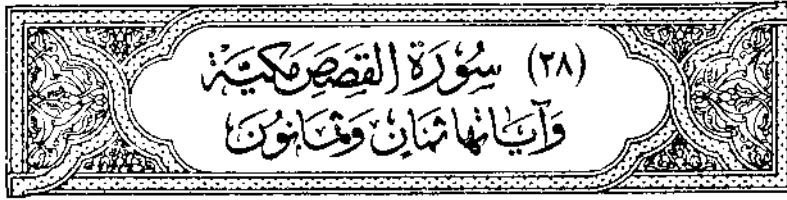 (٢٨) سُوْرَةُ القَصَصِ مَكِيَّة
وَآيَاتُهَا ثَمَانٍ وَثَمَانُونَ